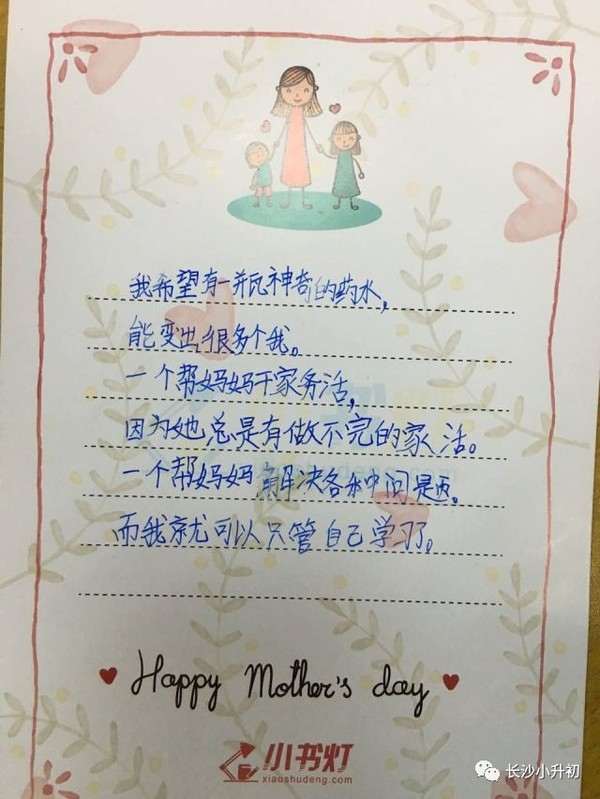 我希望有一瓶神奇的药水，
能变出很多个我。
一个帮妈妈干家务活，
因为她总是有做不完的家活。
一个帮妈妈解决各种问题。
而我就可以只管自己学习了。
Happy Mother's day
小书灯
xiaoshudeng.com
长沙小升初